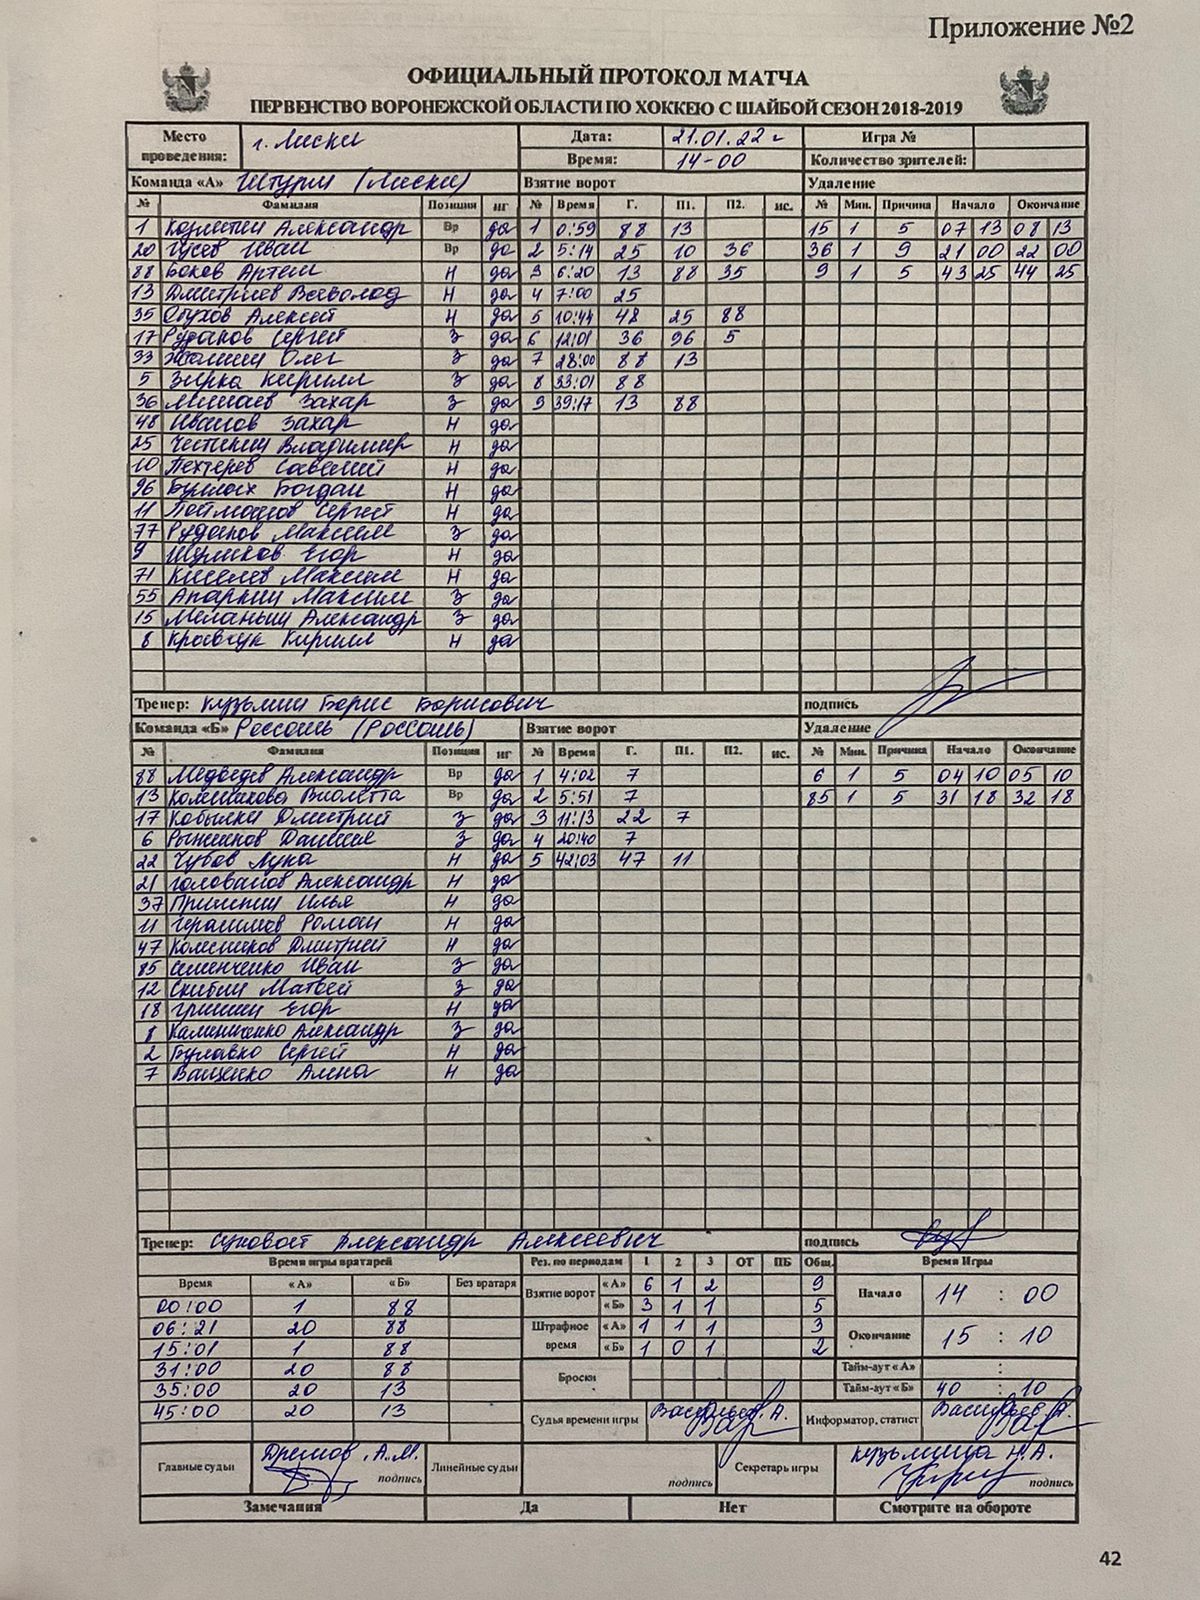 Приложение №2
ОФИЦИАЛЬНЫЙ ПРОТОКОЛ МАТЧА
ПЕРВЕНСТВО ВОРОНЕЖСКОЙ ОБЛАСТИ ПО ХОККЕЮ С ШАЙБОЙ СЕЗОН 2018-2019
Место проведения: г. Лиски Дата: 21.01.22 г Игра №
Время: 14-00 Количество зрителей:
Команда «А» Штурм (Лиски) Взятие ворот Удаление
№ Фамилия Позиция иг № Время Г. П1. П2. ис. № Мин. Причина Начало Окончание
1 Александр Вр да 1 0:59 88 13 15 1 5 07 13 08 13
20 Гусев Иван Вр да 2 5:14 25 10 36 36 1 9 21 00 22 00
88 Боков Артем Н да 3 6:20 13 88 35 9 1 5 43 25 44 25
13 Дмитриев Всеволод Н да 4 7:00 25
35 Стухов Алексей Н да 5 10:44 48 25 88
17 Рудаков Сергей З да 6 12:01 36 96 5
33 Олег З да 7 28:00 88 13
5 Зирка Кирилл З да 8 33:01 88
36 Минаев Захар З да 9 39:17 13 88
48 Иванов Захар Н да
25 Владимир Н да
10 Пехтерев Савелий Н да
96 Богдан Н да
11 Сергей Н да
77 Рудаков Максим З да
9 Шумиков Егор Н да
71 Киселев Максим Н да
55 Апаркин Максим З да
15 Меланьин Александр З да
8 Кравчук Кирилл Н да
Тренер: Кузьмин Борис Борисович подпись
Команда «Б» Россошь (Россошь) Взятие ворот Удаление
№ Фамилия Позиция иг № Время Г. П1. П2. ис. № Мин. Причина Начало Окончание
88 Медведев Александр Вр да 1 4:02 7 6 1 5 04 10 05 10
13 Колесникова Виолетта Вр да 2 5:51 7 85 1 5 31 18 32 18
17 Кобылка Дмитрий З да 3 11:13 22 7
6 Рыжиков Даниил З да 4 20:40 7
22 Чубов Лука Н да 5 42:03 47 11
21 Голованов Александр Н да
37 Илья Н да
11 Герасимов Роман Н да
47 Колесников Дмитрий Н да
85 Семенченко Иван З да
12 Скибин Матвей З да
18 Гришин Егор Н да
8 Калиниченко Александр З да
2 Булавко Сергей Н да
7 Ващенко Алина Н да
Тренер: Суховат Александр Алексеевич подпись
Время игры вратарей Рез. по периодам 1 2 3 ОТ ПБ Общ. Время Игры
Время «А» «Б» Без вратаря Взятие ворот «А» 6 1 2 9 Начало 14 : 00
00:00 1 88 «Б» 3 1 1 5
06:21 20 88 Штрафное время «А» 1 1 1 3 Окончание 15 : 10
15:01 1 88 «Б» 1 0 1 2
31:00 20 88 Броски Тайм-аут «А» :
35:00 20 13 Тайм-аут «Б» 40 : 10
45:00 20 13 Судья времени игры Васильев. А. Информатор, статист
Главные судьи Дремов. А.М. подпись Линейные судьи подпись Секретарь игры Кузьмина Н.А. подпись
Замечания Да Нет Смотрите на обороте
42